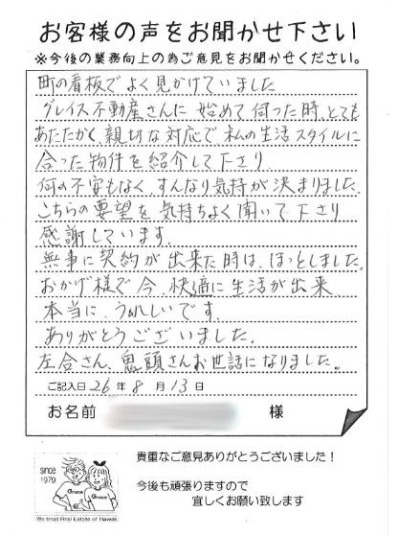 お客様の声をお聞かせ下さい
※今後の業務向上の為ご意見をお聞かせください。
町の看板でよく見かけていました
グレイス不動産さんに始めて伺った時、とても
あたたかく、親切な対応で私の生活スタイルに
合った物件を紹介して下さり
何の不安もなく、すんなり気持が決まりました。
こちらの要望を気持ちよく聞いて下さり
感謝しています。
無事に契約が出来た時は、ほっとしました。
おかげ様で今、快適に生活が出来
本当に、うれしいです。
ありがとうございました。
左合さん、鬼頭さんお世話になりました。
ご記入日 26年 8月 13日
お名前 様
since
1979
Grace
Grace
貴重なご意見ありがとうございました！
今後も頑張りますので
宜しくお願い致します